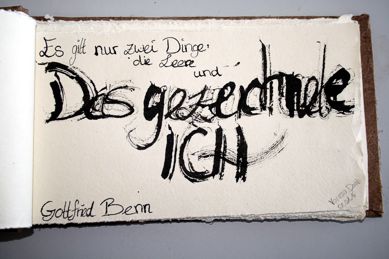 Es gilt nur zwei Dinge:
die Leere
und
Das gezeichnete
ICH
Gottfried Benn